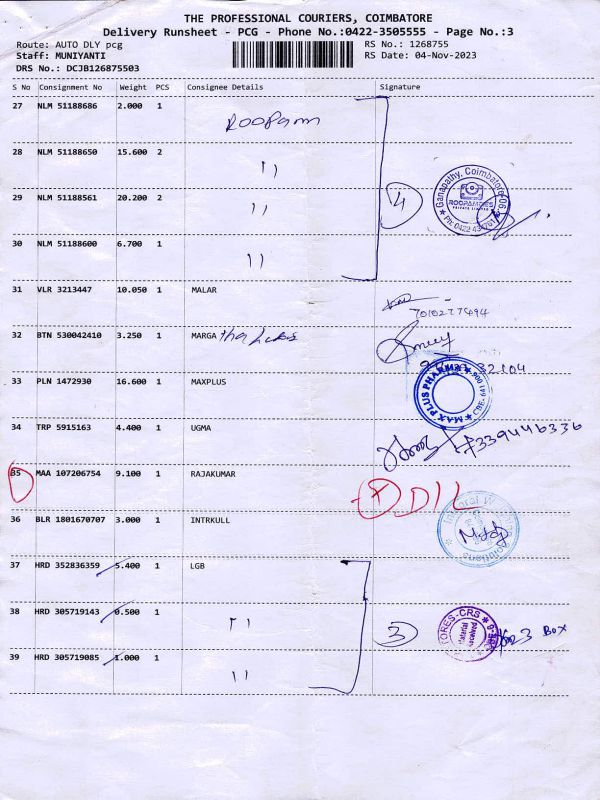 THE PROFESSIONAL COURIERS, COIMBATORE
Delivery Runsheet - PCG - Phone No.:0422-3505555 - Page No.:3
Route: AUTO DLY pcg RS No.: 1268755
Staff: MUNIYANTI RS Date: 04-Nov-2023
DRS No.: DCJB126875503
S No Consignment No Weight PCS Consignee Details Signature
27 NLM 51188686 2.000 1
28 NLM 51188650 15.600 2 "
29 NLM 51188561 20.200 2 " 4
Ganapathy, Coimbatore-06
ROOPAM
30 NLM 51188600 6.700 1 "
31 VLR 3213447 10.050 1 MALAR
7010277494
32 BTN 530042410 3.250 1 MARGA
32104
33 PLN 1472930 16.600 1 MAXPLUS
MAX PLUS PHARMA
34 TRP 5915163 4.400 1 UGMA
9339446336
35 MAA 107206754 9.100 1 RAJAKUMAR
DIL
36 BLR 1801670707 3.000 1 INTRKULL
37 HRD 352836359 5.400 1 LGB
38 HRD 305719143 0.500 1 " 3
STORES-CRS
Material
Received
3 Box
39 HRD 305719085 1.000 1 "